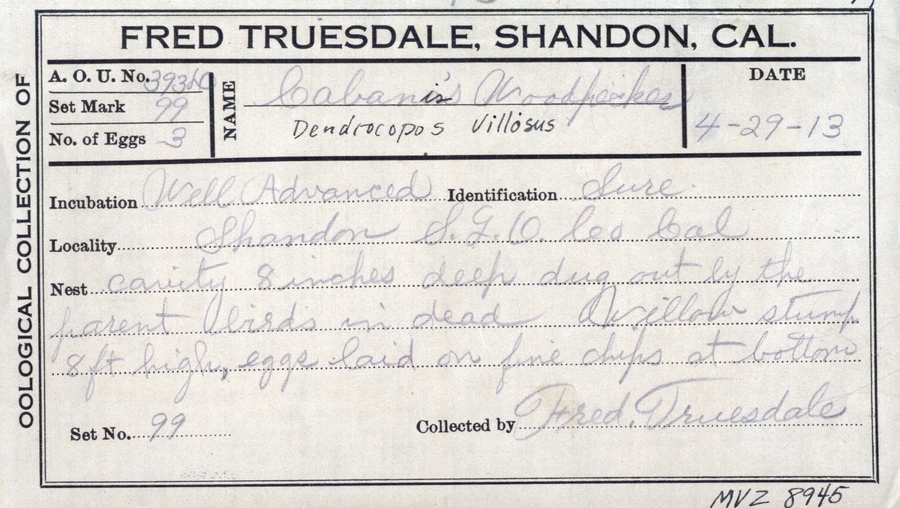 FRED TRUESDALE, SHANDON, CAL.
OOLOGICAL COLLECTION OF
A. O. U. No. 393c
Set Mark 99
No. of Eggs 3
NAME Cabanis Woodpecker
Dendrocopos villosus
DATE
4-29-13
Incubation Well Advanced Identification Sure
Locality Shandon S.L.O. Co Cal
Nest cavity 8 inches deep dug out by the
parent birds in dead Willow stump
8 ft high, eggs laid on fine chips at bottom
Set No. 99 Collected by Fred. Truesdale
MVZ 8945